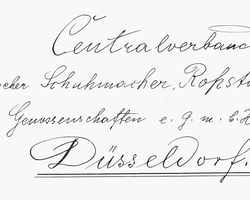 Centralverban
cher Schuhmacher, Rohsto
Genossenschaften e. g. m. b. H
Düsseldorf.